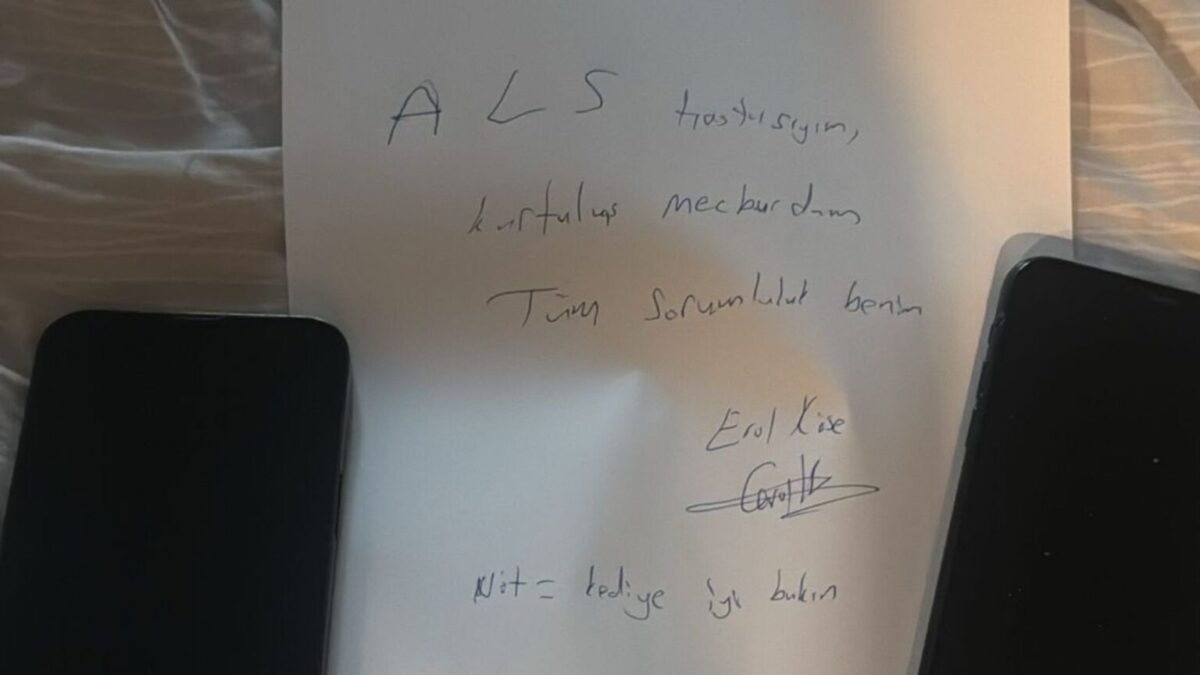 ALS hastasıyım,
kurtuluş mecburdum
Tüm sorumluluk benim
Erol Köse
Not = kediye iyi bakın